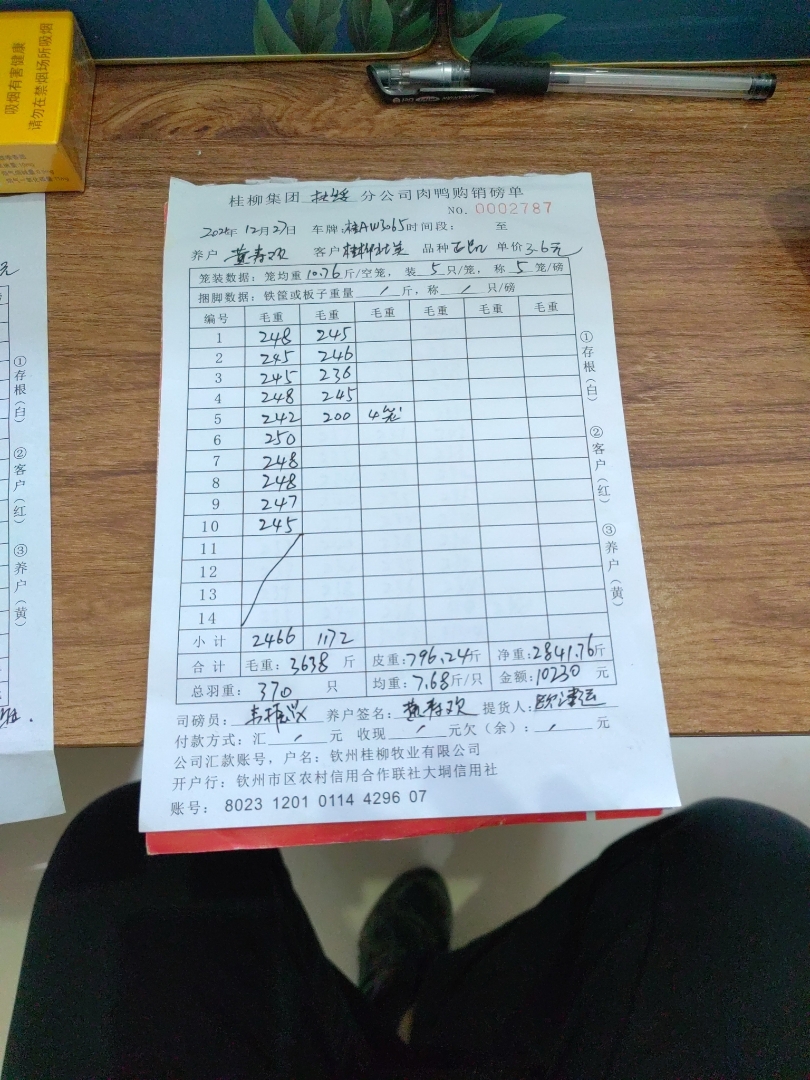 吸烟有害健康
请勿在禁烟场所吸烟
桂柳集团 分公司肉鸭购销磅单
NO. 0002787
2025年12月27日 车牌:桂AW3065 时间段: 至
养户 黄寿欢 客户 桂柳 品种 单价 3.6元
笼装数据: 笼均重 10.76 斤/空笼, 装 5 只/笼, 称 5 笼/磅
捆脚数据: 铁筐或板子重量 / 斤, 称 / 只/磅
编号 毛重 毛重 毛重 毛重 毛重 毛重
1 248 245
2 245 246
3 245 236
4 248 245
5 242 200 4笼
6 250
7 248
8 248
9 247
10 245
11
12
13
14
小计 2466 1172
合计 毛重: 3638 斤 皮重: 796.24斤 净重: 2841.76斤
总羽重: 370 只 均重: 7.68斤/只 金额: 10230 元
司磅员: 养户签名: 黄寿欢 提货人:
付款方式: 汇 / 元 收现 / 元欠(余): / 元
公司汇款账号, 户名: 钦州桂柳牧业有限公司
开户行: 钦州市区农村信用合作联社大垌信用社
账号: 8023 1201 0114 4296 07
①存根(白)
②客户(红)
③养户(黄)
元
①存根(白)
②客户(红)
③养户(黄)